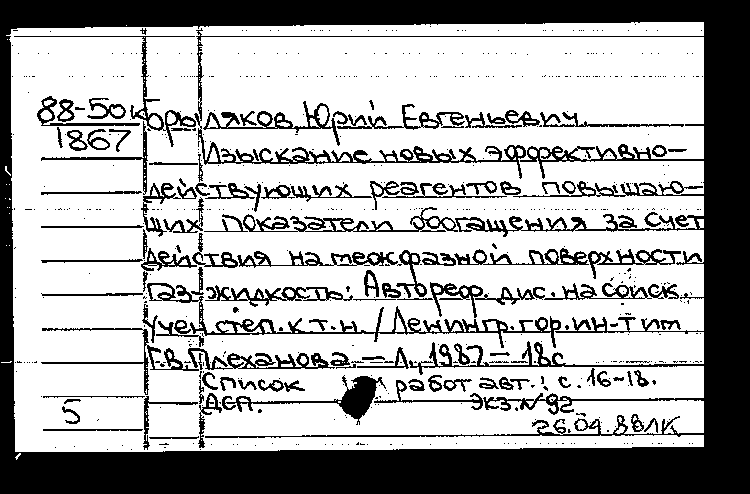 88-50к
1867
Горыляков, Юрий Евгеньевич.
Изыскание новых эффективно-
действующих реагентов повышаю-
щих показатели обогащения за счет
действия на межфазной поверхности
газ-жидкость: Автореф. дис. на соиск.
учен. степ. к.т.н. / Ленингр. гор. ин-т им.
Г.В. Плеханова. – Л., 1987. – 18с
Список работ авт.: с. 16-18.
ДСП. Экз. № 92
5
26.04.88 ЛК